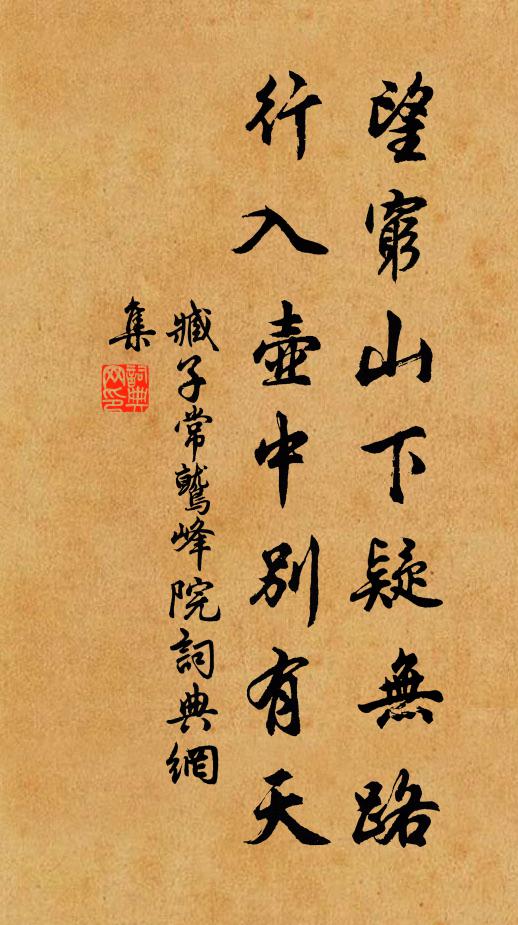 望窮山下疑無路
行入壺中別有天
臧子常鷲峰院詞典網
集
詞典網印